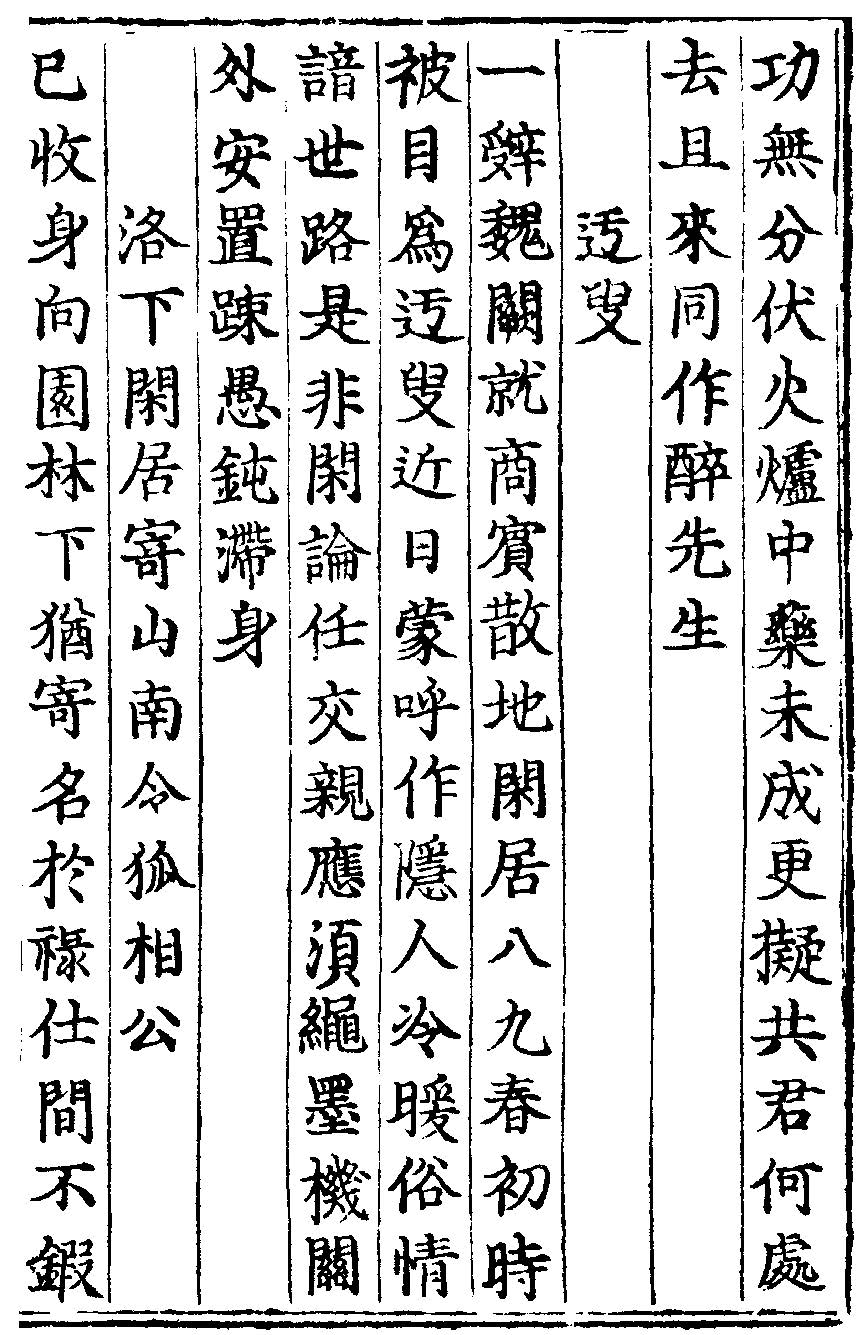 功無分伏火爐中藥未成更擬共君何處
去且來同作醉先生
迃叟
一辤魏闕就商賔散地閑居八九春初時
被目爲迃叟近日蒙呼作隱人冷暖俗情
諳世路是非閑論任交親應湏繩墨機關
外安置踈愚鈍滯身
洛下閑居寄山南令狐相公
已收身向園林下猶寄名於祿仕間不鍜